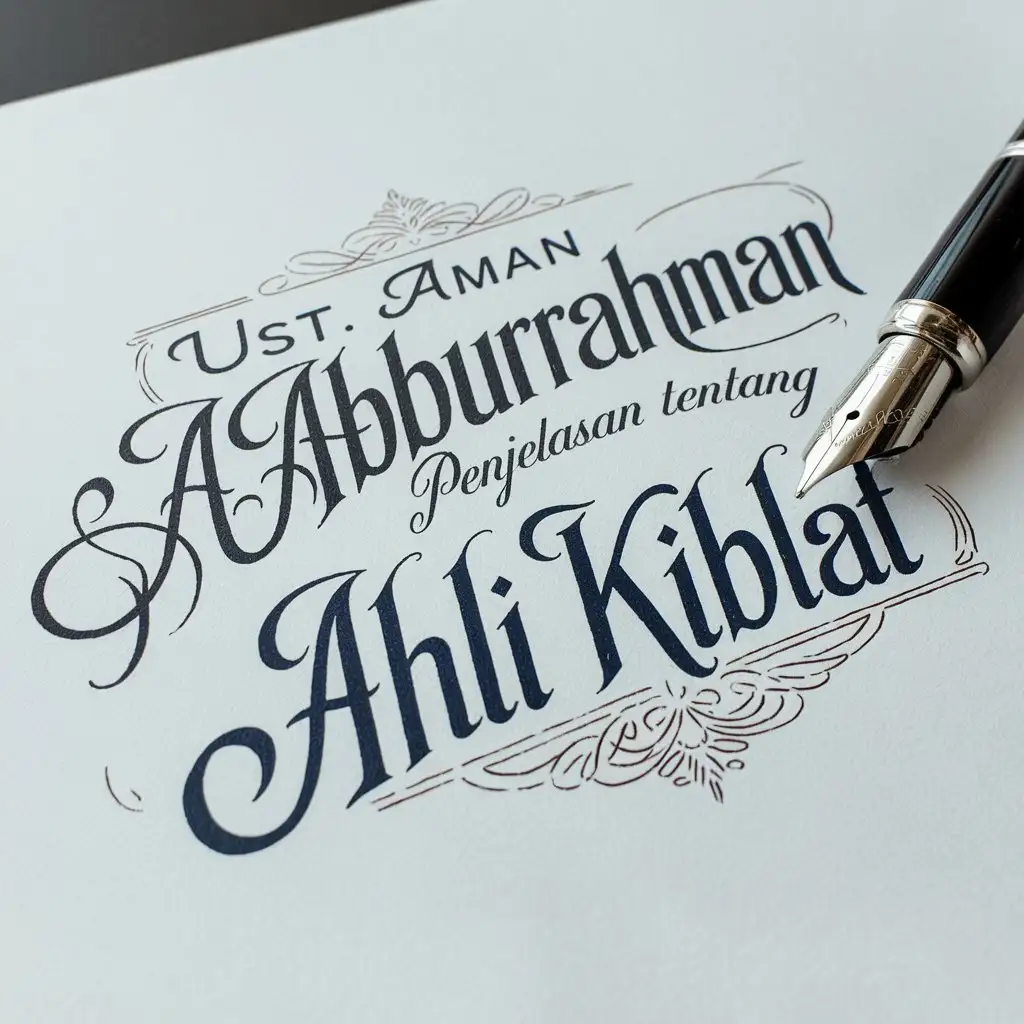 UST. AMAN
AAbburrahman
Penjelasan tentang
Ahli Kiblat